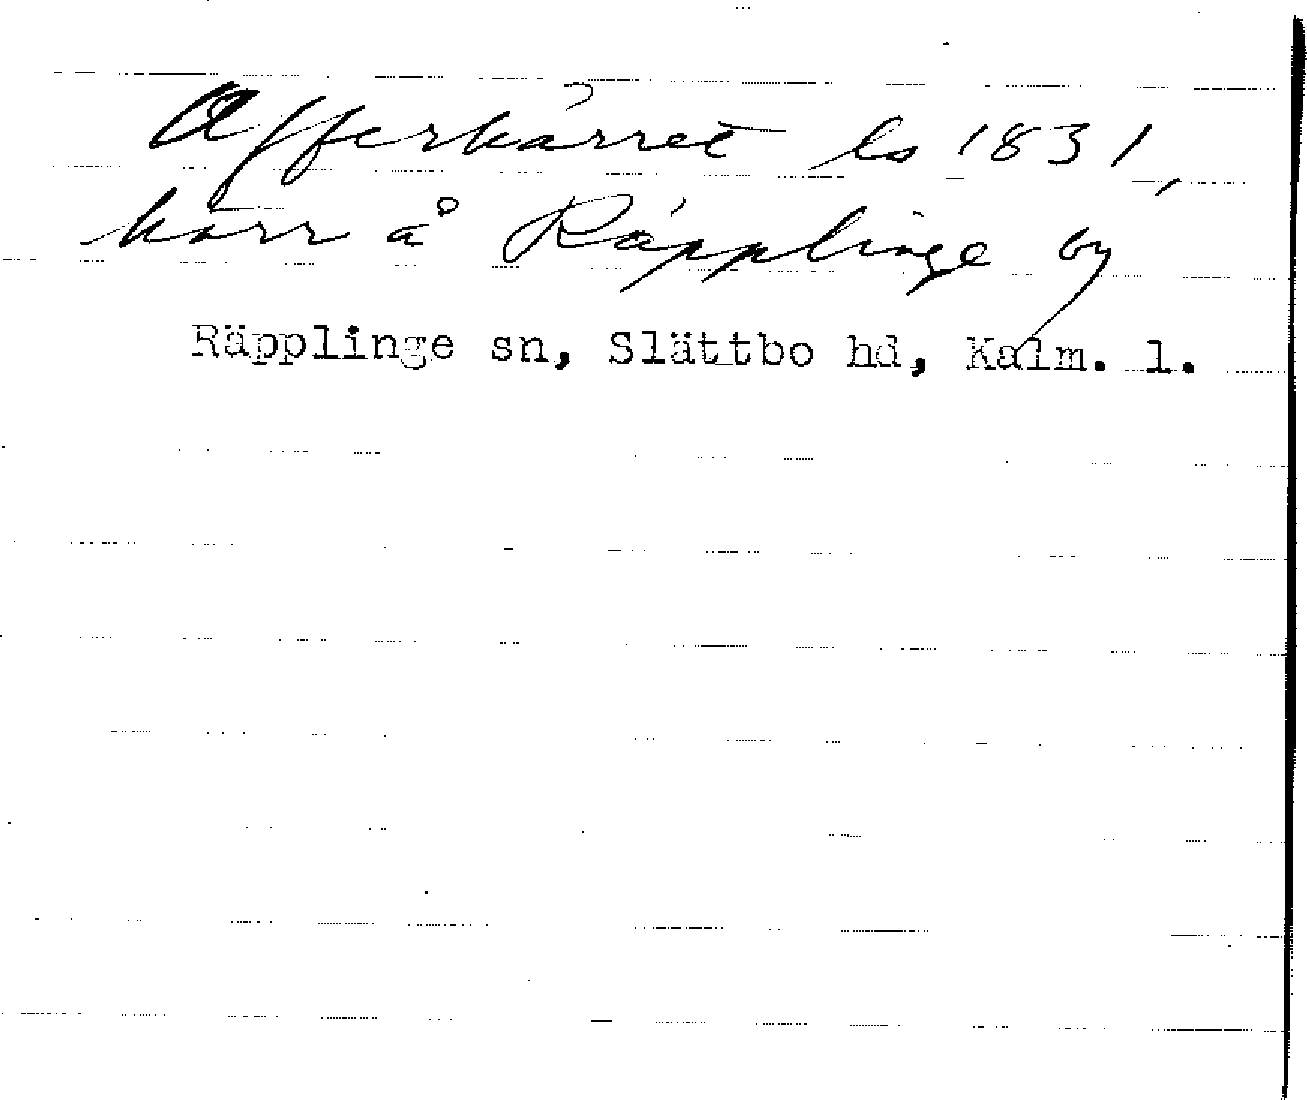 Afferkärret ls 1831,
kärr å Räpplinge by
Räpplinge sn, Slättbo hd, Kalm. l.